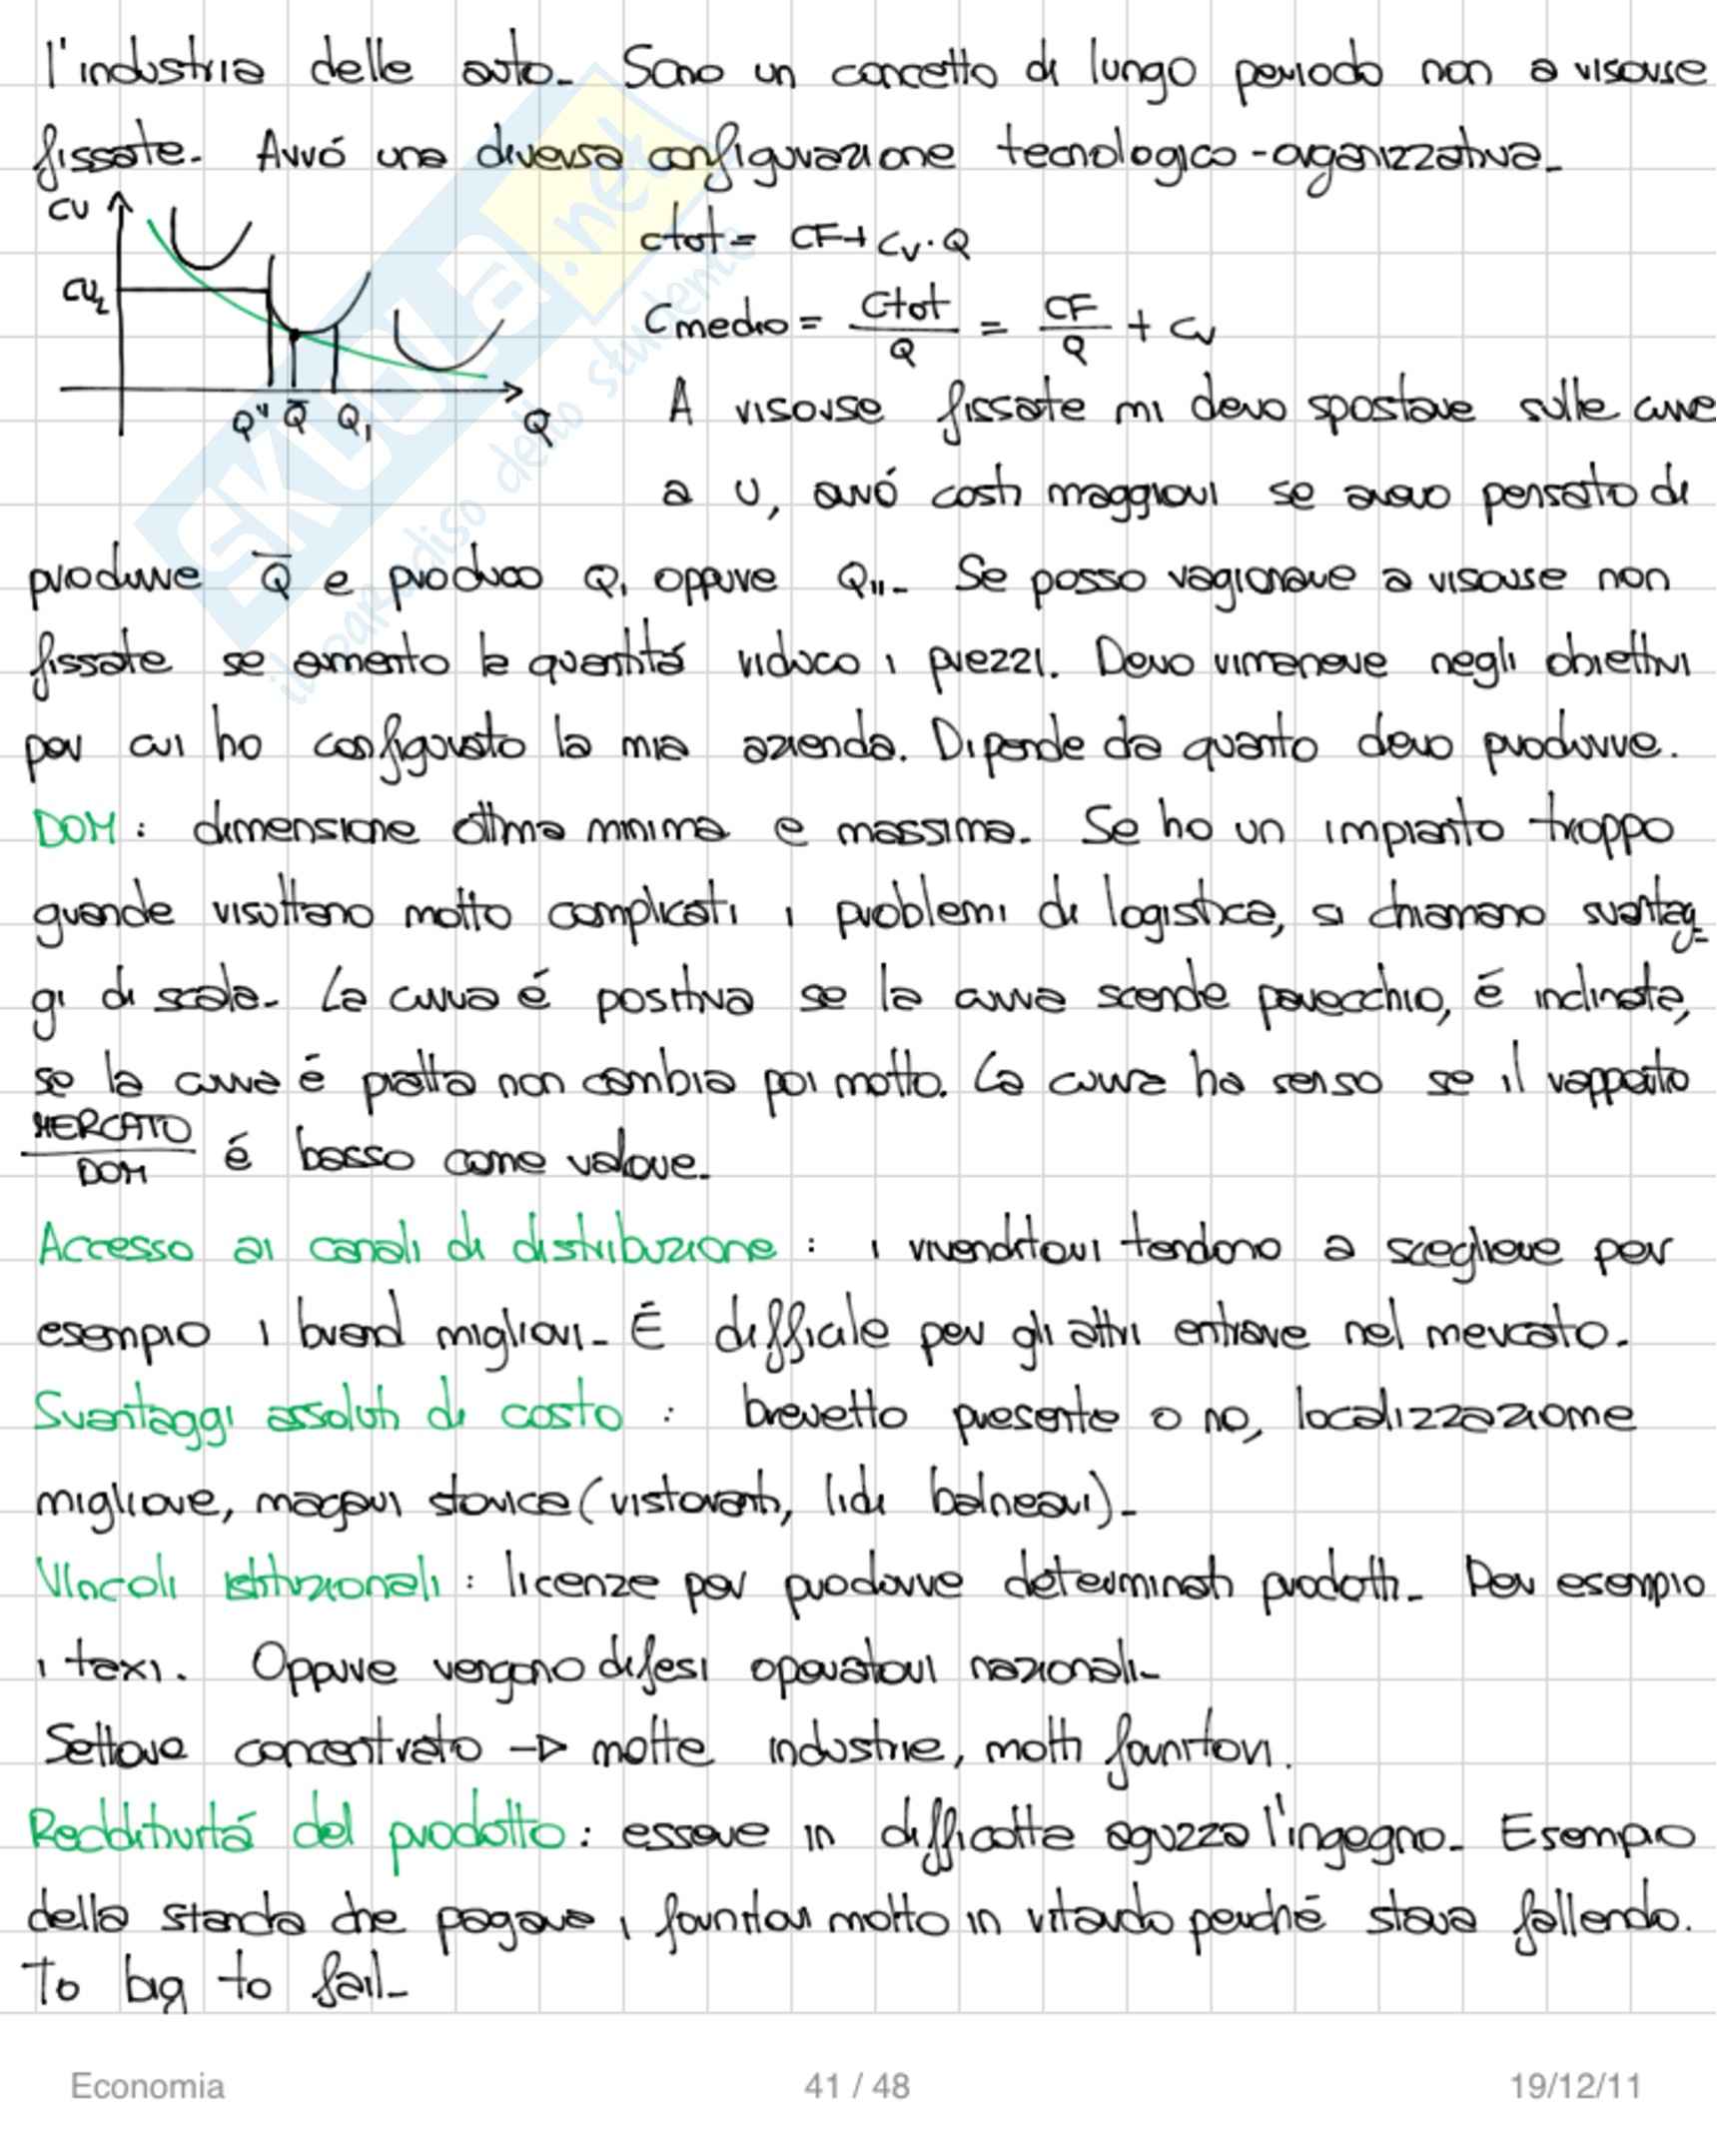 l'industria delle auto. Sono un concetto di lungo periodo non a risorse
fissate. Avrò una diversa configurazione tecnologico-organizzativa.
CU
CU₂
Q" Q̄ Q₁ Q
Ctot = CF + Cv·Q
Cmedio = Ctot/Q = CF/Q + Cv
A risorse fissate mi devo spostare sulle curve
a U, avrò costi maggiori se avevo pensato di
produrre Q̄ e produco Q₁ oppure Q₁₁. Se posso ragionare a risorse non
fissate se aumento la quantità riduco i prezzi. Devo rimanere negli obiettivi
per cui ho configurato la mia azienda. Dipende da quanto devo produrre.
DOM: dimensione ottima minima e massima. Se ho un impianto troppo
grande risultano molto complicati i problemi di logistica, si chiamano svantag=
gi di scala. La curva é positiva se la curva scende parecchio, é inclinata,
se la curva é piatta non cambia poi molto. La curva ha senso se il rapporto
MERCATO/DOM é basso come valore.
Accesso ai canali di distribuzione: i rivenditori tendono a scegliere per
esempio i brand migliori. É difficile per gli altri entrare nel mercato.
Svantaggi assoluti di costo: brevetto presente o no, localizzazione
migliore, magari storica (ristoranti, lidi balneari).
Vincoli istituzionali: licenze per produrre determinati prodotti. Per esempio
i taxi. Oppure vengono difesi operatori nazionali.
Settore concentrato → molte industrie, molti fornitori.
Redditività del prodotto: essere in difficolta aguzza l'ingegno. Esempio
della standa che pagava i fornitori molto in ritardo perché stava fallendo.
To big to fail.
SKUOLA.net
il paradiso dello studente
Economia
41 / 48
19/12/11